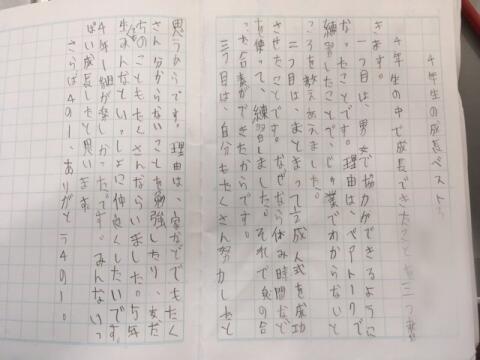 4年生の成長ベスト3
4年生の中で成長できたことを三つ書
きます。
一つ目は、男女で協力ができるように
なったことです。理由は、ペアトークで
練習したことで、じゅ業でわからないと
ころを教え合えました。
二つ目は、まとまって½成人式を成功
させたことです。なぜなら休み時間など
を使って、練習しました。それで息の合
った合奏ができたからです。
三つ目は、自分もたくさん努力したと
思うからです。理由は、家などでもたく
さん分からないことも勉強したり、友だ
ちのこともたくさんならいました。5年
生みんなといっしょに仲良くしたいです。
4年1組が楽しかったです。みんないっ
ぱい成長したと思います
さらば4の1、ありがとう4の1。